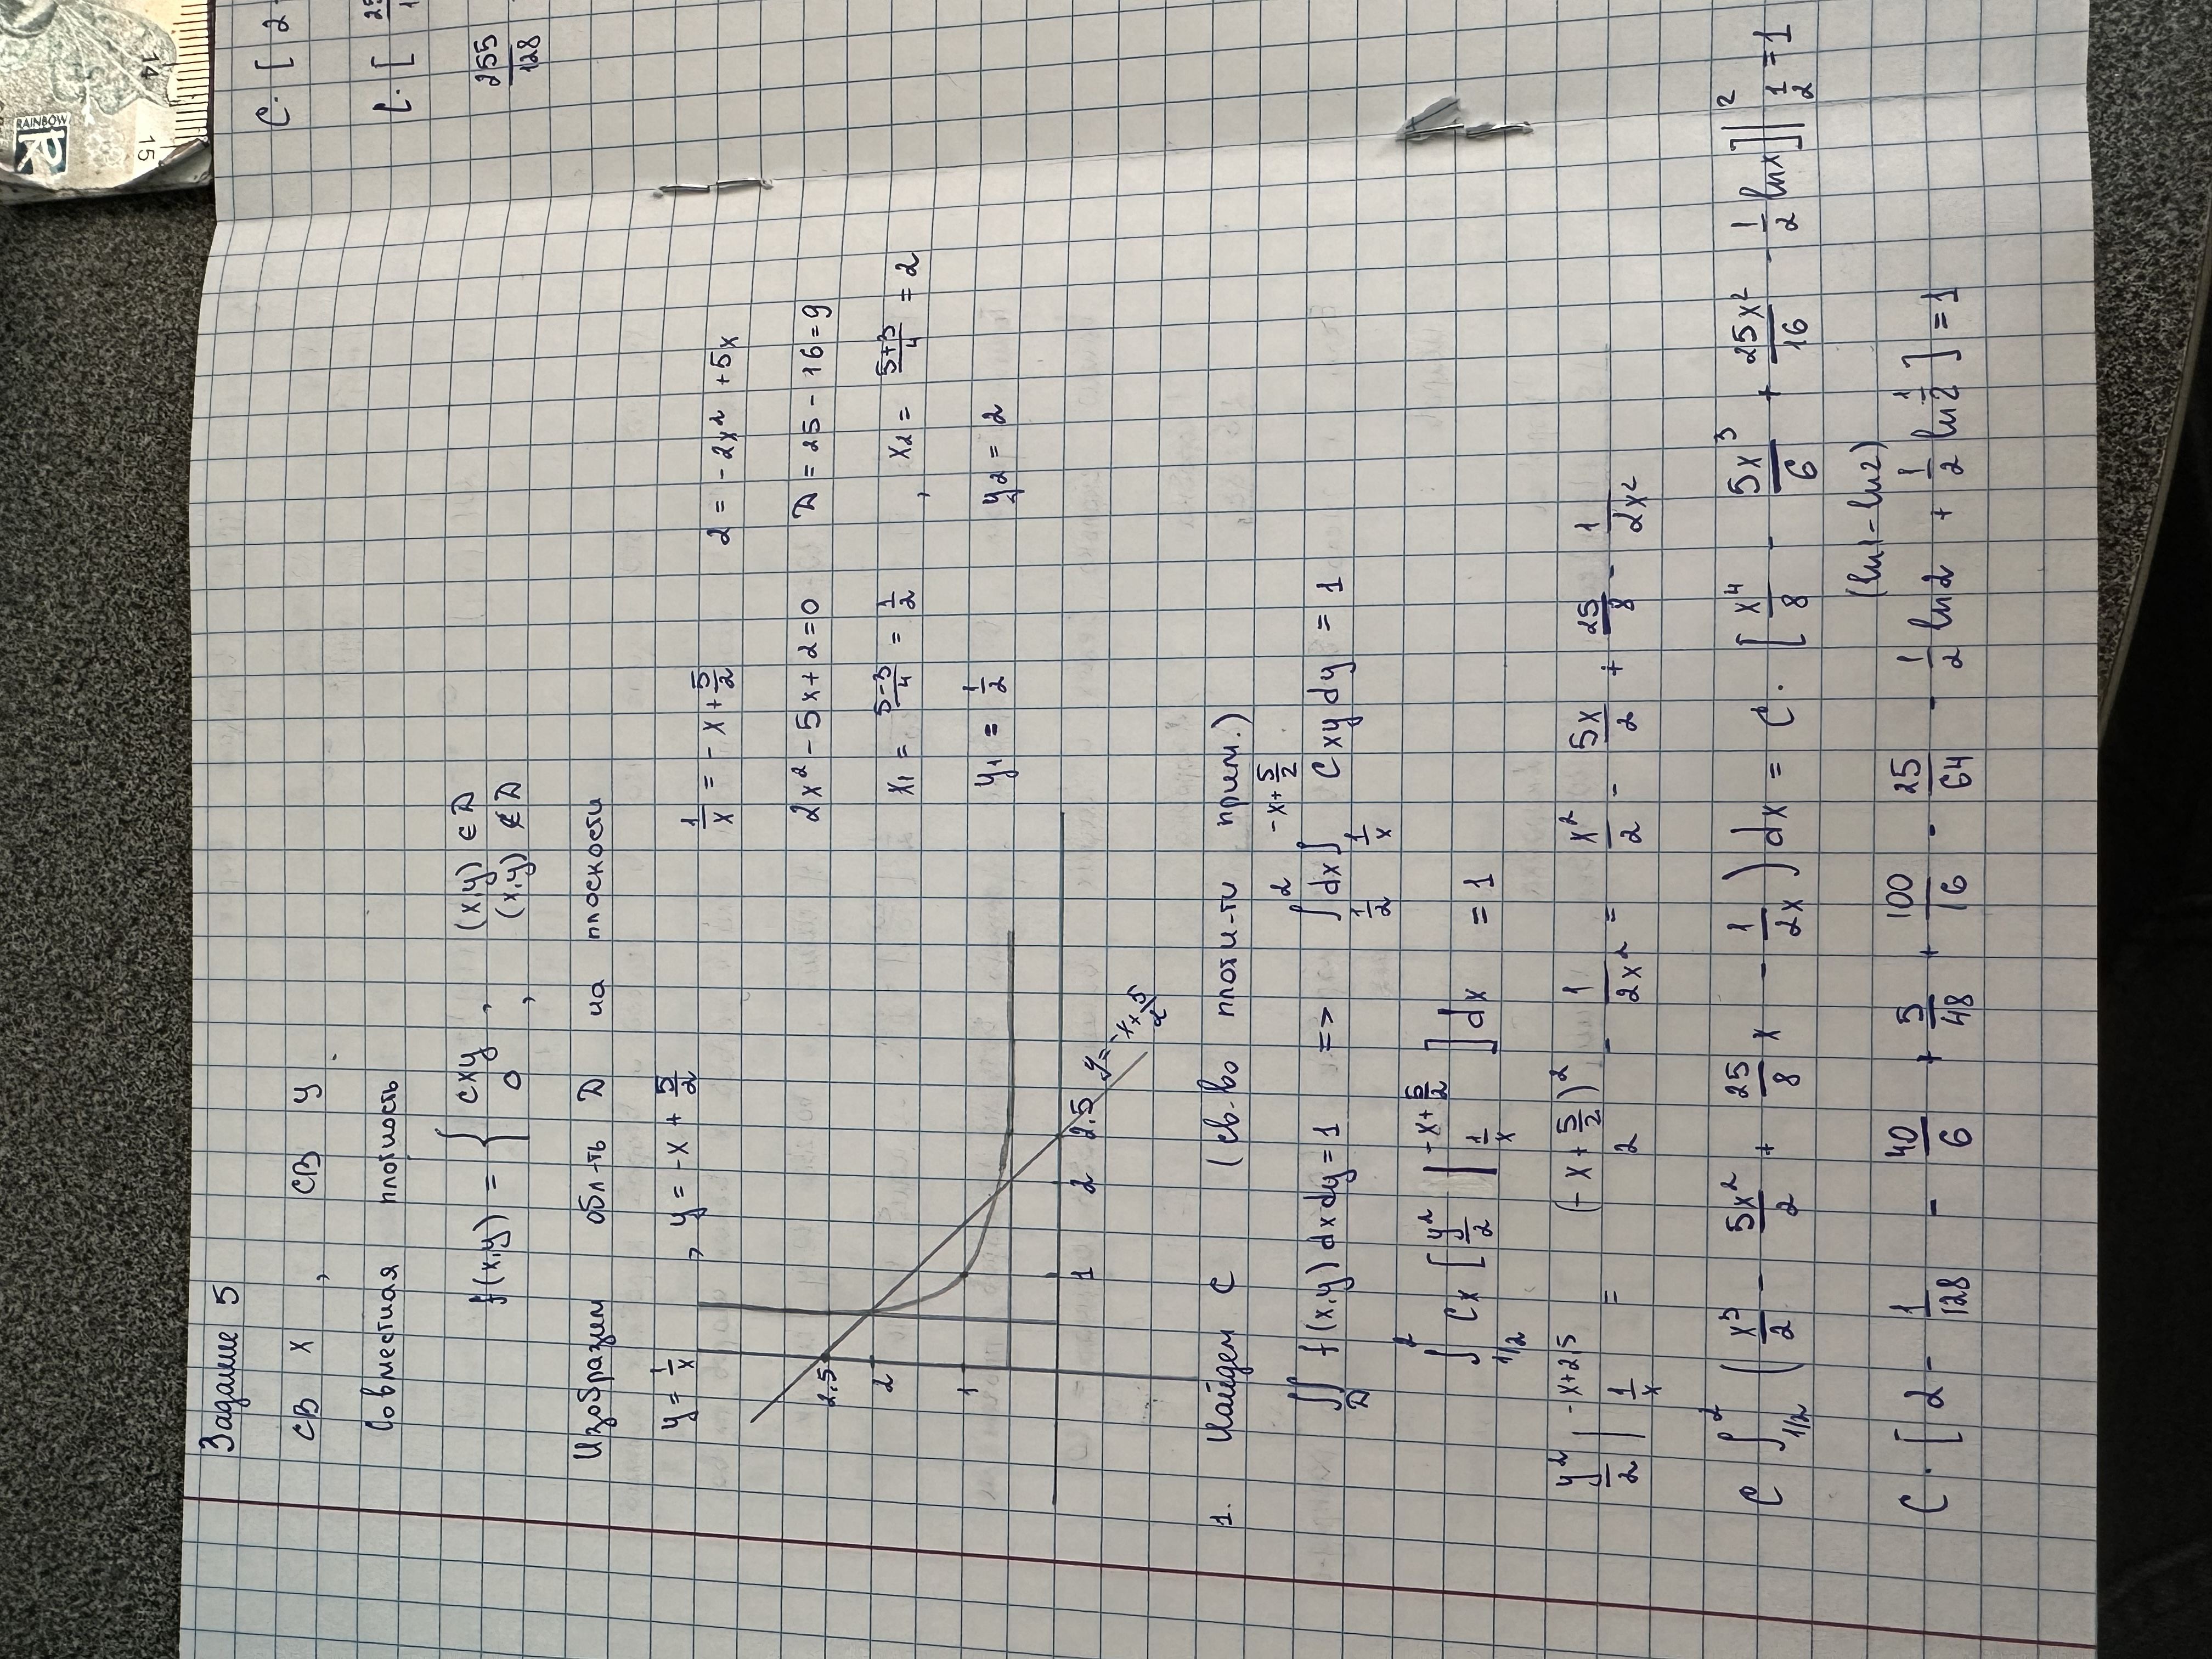 Задание 5
СВ X , СВ Y.
Совместная плотность
f(x,y) = { cxy , (x,y) ∈ D
0 , (x,y) ∉ D
Изобразим обл-ть D на плоскости
y = 1/x , y = -x + 5/2
1/x = -x + 5/2    2 = -2x² + 5x
2x² - 5x + 2 = 0    D = 25 - 16 = 9
x₁ = (5-3)/4 = 1/2 , x₂ = (5+3)/4 = 2
y₁ = 1/2    y₂ = 2
2.5
2
1
1 2 2.5
y = -x + 5/2
1. Найдем C (св-во плотн-ти прим.)
∬_D f(x,y) dxdy = 1 => ∫_{1/2}^{2} dx ∫_{1/x}^{-x+5/2} Cxy dy = 1
∫_{1/2}^{2} Cx [y²/2 |_{1/x}^{-x+5/2}] dx = 1
y²/2 |_{1/x}^{-x+2,5} = (-x + 5/2)²/2 - 1/2x² = x²/2 - 5x/2 + 25/8 - 1/2x²
C ∫_{1/2}^{2} (x³/2 - 5x²/2 + 25/8 x - 1/2x) dx = C · [x⁴/8 - 5x³/6 + 25x²/16 - 1/2 ln x] |_{1/2}^{2} = 1
(ln1 - ln2)
C · [2 - 1/128 - 40/6 + 5/48 + 100/16 - 25/64 - 1/2 ln2 + 1/2 ln 1/2] = 1
C· [ 2
C· [
255/128
RAINBOW
15 14